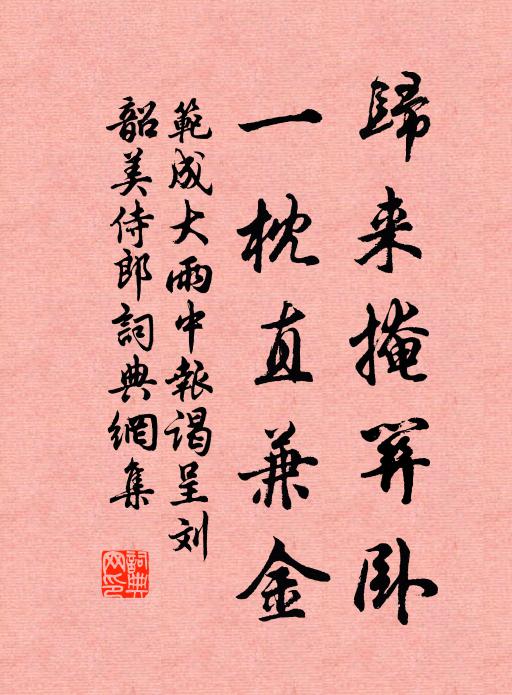 歸来掩關卧
一枕直兼金
範成大雨中報謁呈刘
韶美侍郎詞典網集
詞典
网印